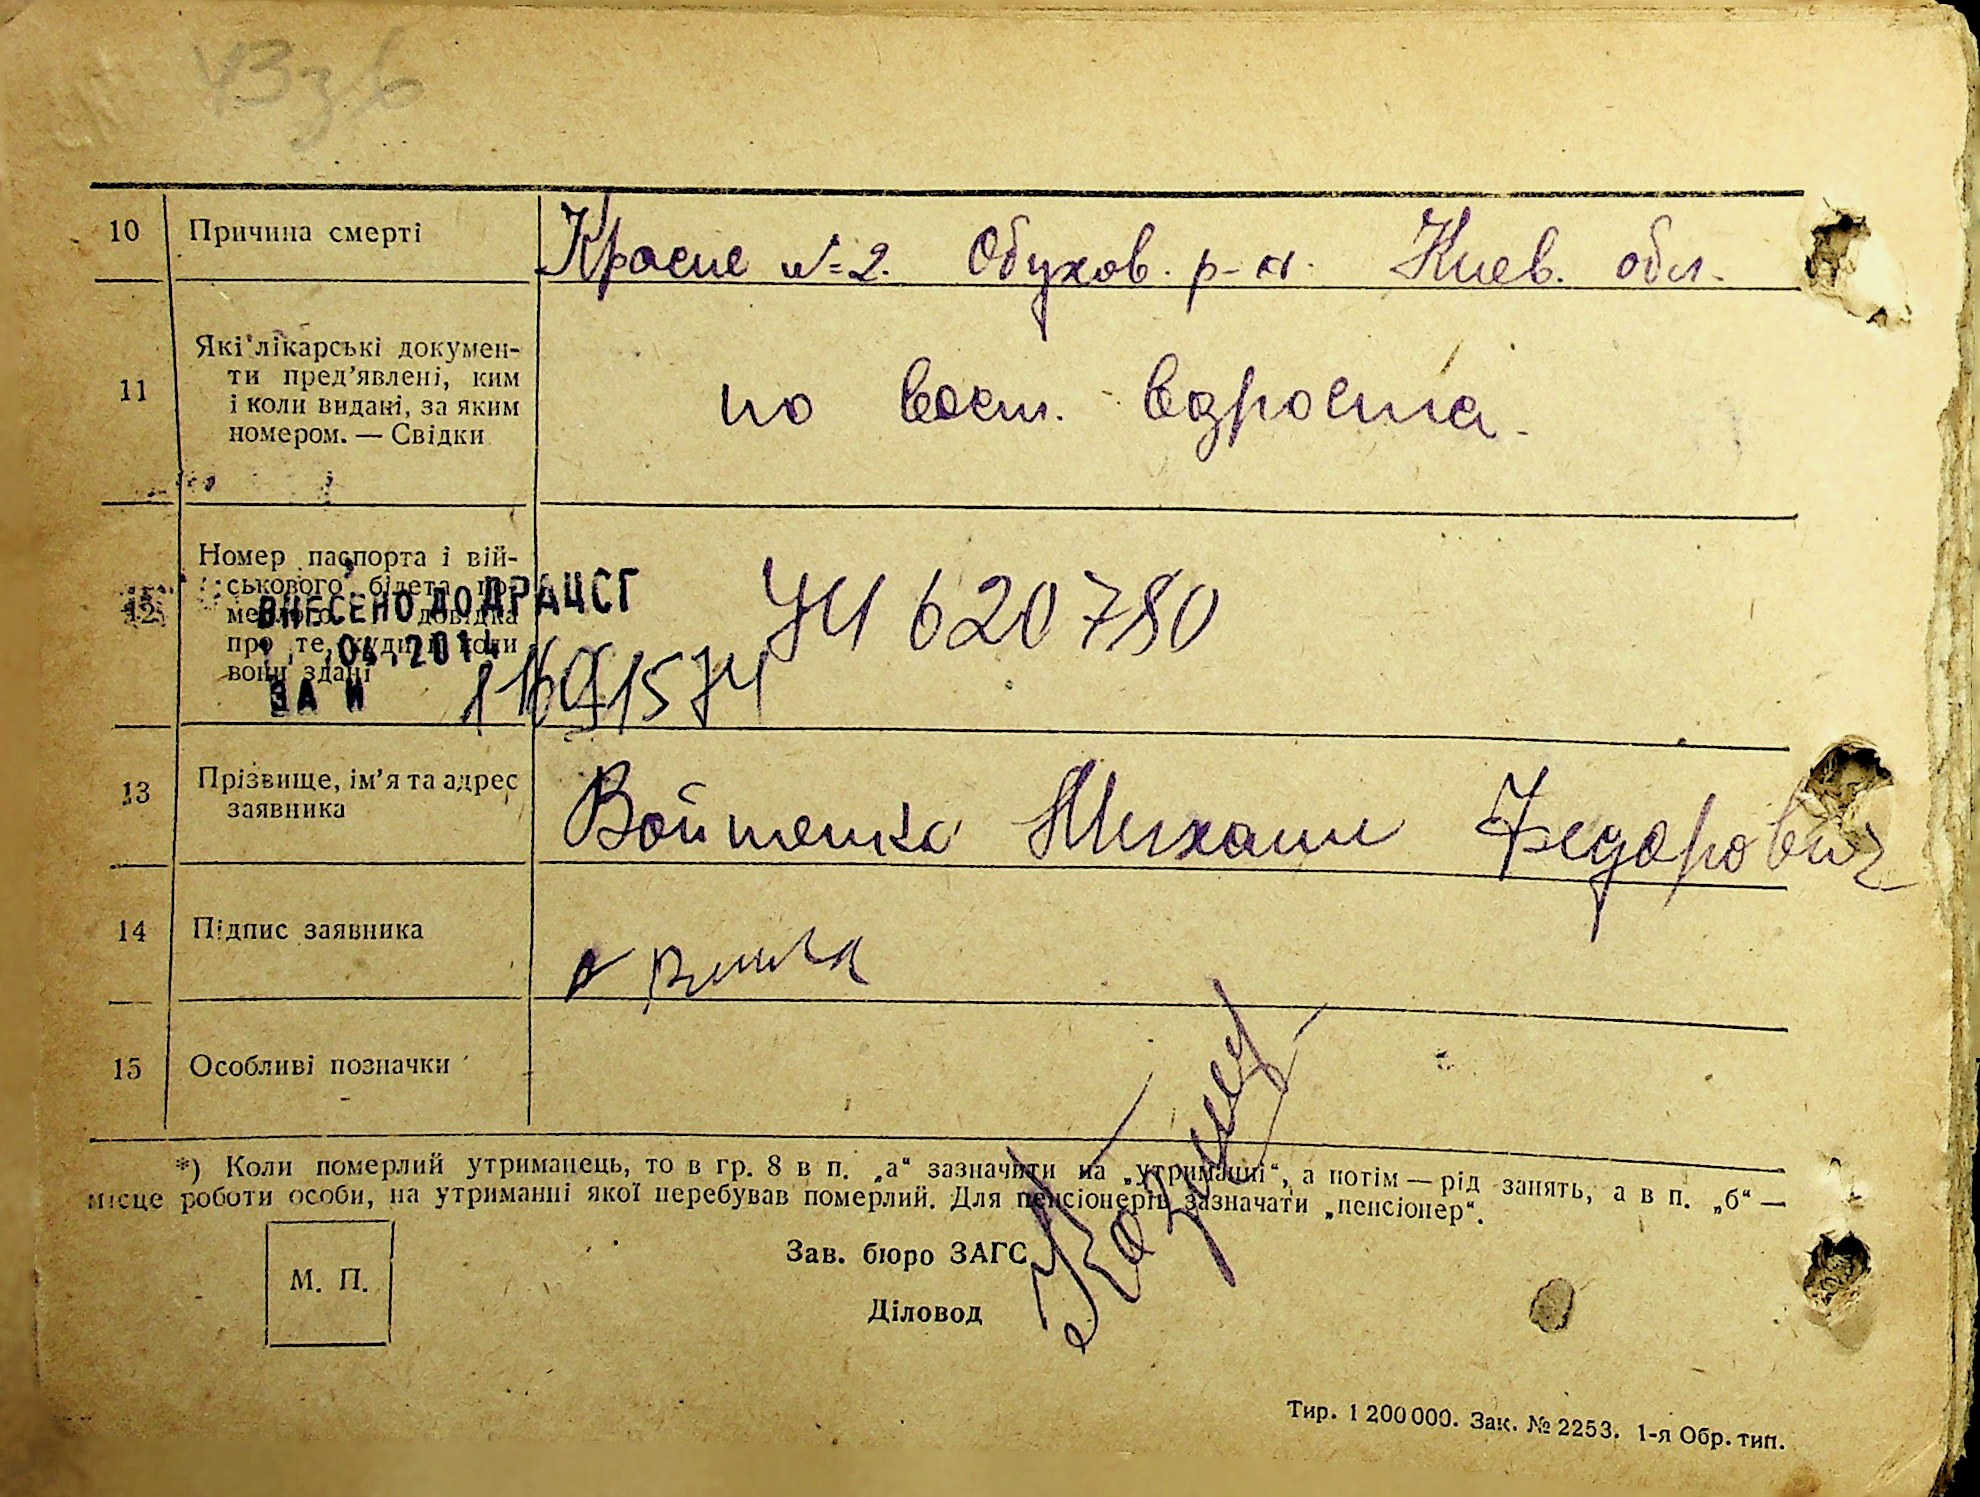 10 Причина смерті Красне №2. Обухов. р-н. Киев. обл.
11 Які лікарські докумен-
ти пред'явлені, ким
і коли видані, за яким
номером. — Свідки
по восст. возроста.
12 Номер паспорта і вій-
ськового білета по-
мерлого довідка
про те, куди і коли
вони здані
УЧ 620780
ВНЕСЕНО ДО ДРАЦСГ
.04.2014
ЗА №
13 Прізвище, ім'я та адрес
заявника
Войтенко Михаил Федорович
14 Підпис заявника
15 Особливі позначки
*) Коли померлий утриманець, то в гр. 8 в п. „а“ зазначити на „утриманні“, а потім — рід занять, а в п. „б“ —
місце роботи особи, на утриманні якої перебував померлий. Для пенсіонерів зазначати „пенсіонер“.
М. П.
Зав. бюро ЗАГС
Діловод
Тир. 1 200 000. Зак. № 2253. 1-я Обр. тип.